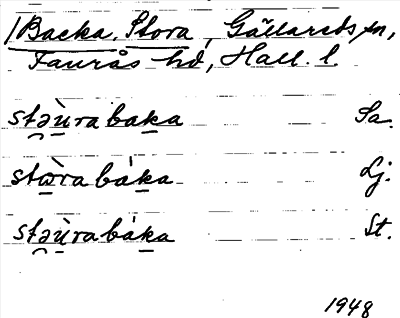 Backa, Stora, Gällareds sn,
Faurås hd, Hall. l.
stəùra baka Sa.
stὼra bàka Lj.
stəùra bàka St.
1948